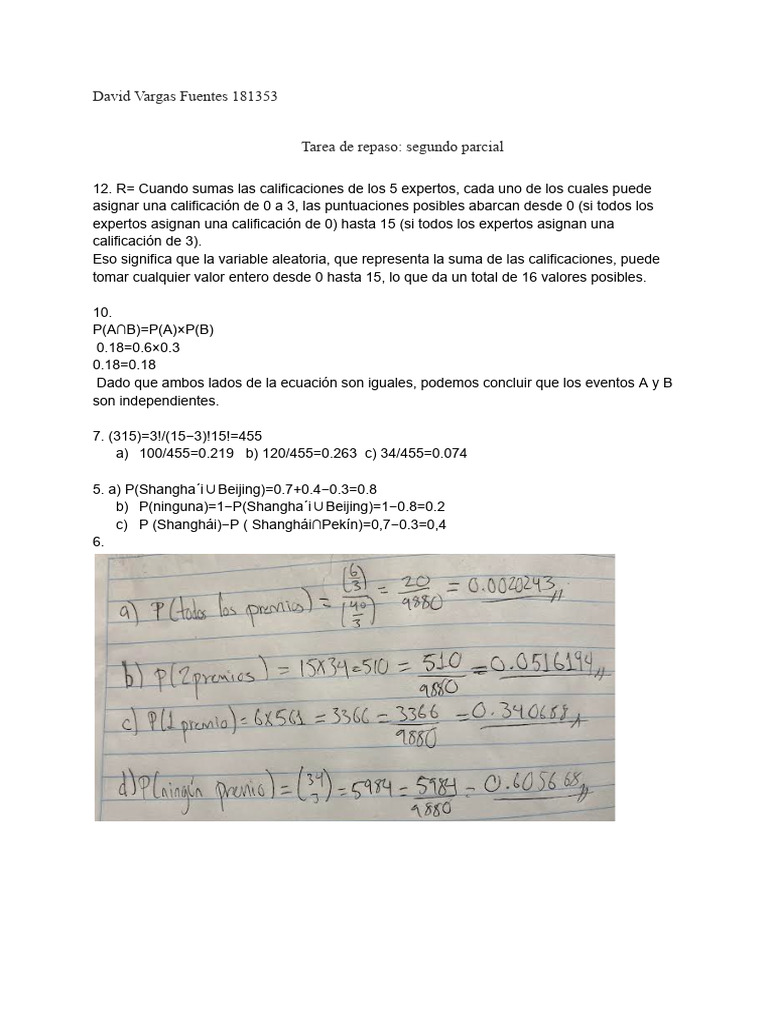 David Vargas Fuentes 181353
Tarea de repaso: segundo parcial
12. R= Cuando sumas las calificaciones de los 5 expertos, cada uno de los cuales puede
asignar una calificación de 0 a 3, las puntuaciones posibles abarcan desde 0 (si todos los
expertos asignan una calificación de 0) hasta 15 (si todos los expertos asignan una
calificación de 3).
Eso significa que la variable aleatoria, que representa la suma de las calificaciones, puede
tomar cualquier valor entero desde 0 hasta 15, lo que da un total de 16 valores posibles.
10.
P(A∩B)=P(A)×P(B)
0.18=0.6×0.3
0.18=0.18
Dado que ambos lados de la ecuación son iguales, podemos concluir que los eventos A y B
son independientes.
7. (315)=3!/(15−3)!15!=455
a) 100/455=0.219 b) 120/455=0.263 c) 34/455=0.074
5. a) P(Shangha´i∪Beijing)=0.7+0.4−0.3=0.8
b) P(ninguna)=1−P(Shangha´i∪Beijing)=1−0.8=0.2
c) P (Shanghái)−P ( Shanghái∩Pekín)=0,7−0.3=0,4
6.
a) P(todos los premios) = (6/3)/(40/3) = 20/9880 = 0.0020243
b) P(2 premios) = 15x34=510 = 510/9880 = 0.0516194
c) P(1 premio) = 6x561 = 3366 = 3366/9880 = 0.340688
d) P(ningún premio) = (34/3) = 5984 = 5984/9880 = 0.605668